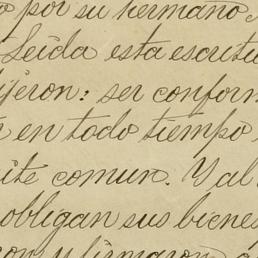 o por su hermano
Leida esta escritu
ijeron: ser conform
en todo tiempo
ite comun. Y al
obligan sus bienes
con y firmaron